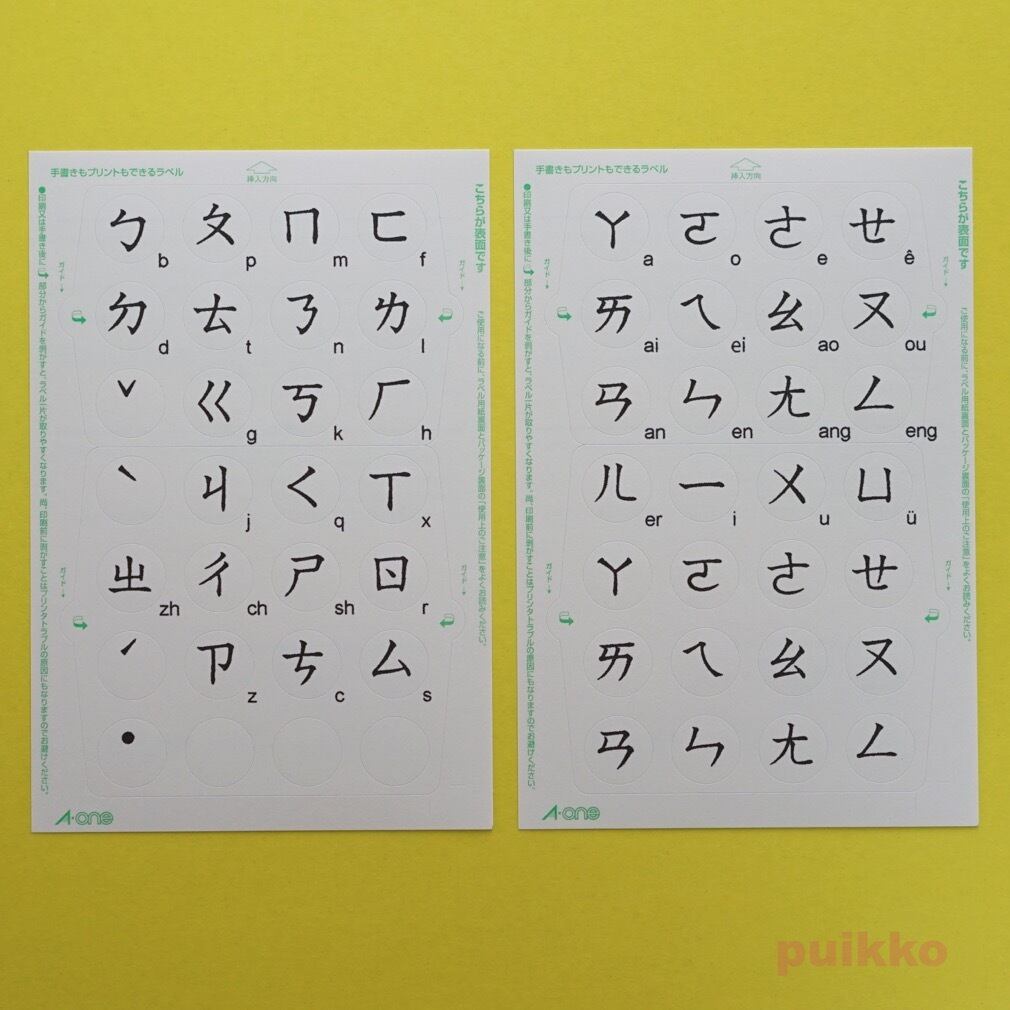 手書きもプリントもできるラベル
挿入方向
こちらが表面です
ご使用になる前に、ラベル用紙裏面とパッケージ裏面の「使用上のご注意」をよくお読みください。
●印刷又は手書き後に
部分からガイドを剥がすと、ラベル一片が取りやすくなります。尚、印刷前に剥がすことはプリンタトラブルの原因にもなりますのでお避けください。
ガイド→
ガイド→
ㄅ b ㄆ p ㄇ m ㄈ f
ㄉ d ㄊ t ㄋ n ㄌ l
ˇ ㄍ g ㄎ k ㄏ h
ˋ ㄐ j ㄑ q ㄒ x
ㄓ zh ㄔ ch ㄕ sh ㄖ r
ˊ ㄗ z ㄘ c ㄙ s
•
ガイド→
ガイド→
A-one
手書きもプリントもできるラベル
挿入方向
こちらが表面です
ご使用になる前に、ラベル用紙裏面とパッケージ裏面の「使用上のご注意」をよくお読みください。
●印刷又は手書き後に
部分からガイドを剥がすと、ラベル一片が取りやすくなります。尚、印刷前に剥がすことはプリンタトラブルの原因にもなりますのでお避けください。
ガイド→
ガイド→
ㄚ a ㄛ o ㄜ e ㄝ ê
ㄞ ai ㄟ ei ㄠ ao ㄡ ou
ㄢ an ㄣ en ㄤ ang ㄥ eng
ㄦ er ㄧ i ㄨ u ㄩ ü
ㄚ ㄛ ㄜ ㄝ
ㄞ ㄟ ㄠ ㄡ
ㄢ ㄣ ㄤ ㄥ
ガイド→
ガイド→
A-one
puikko